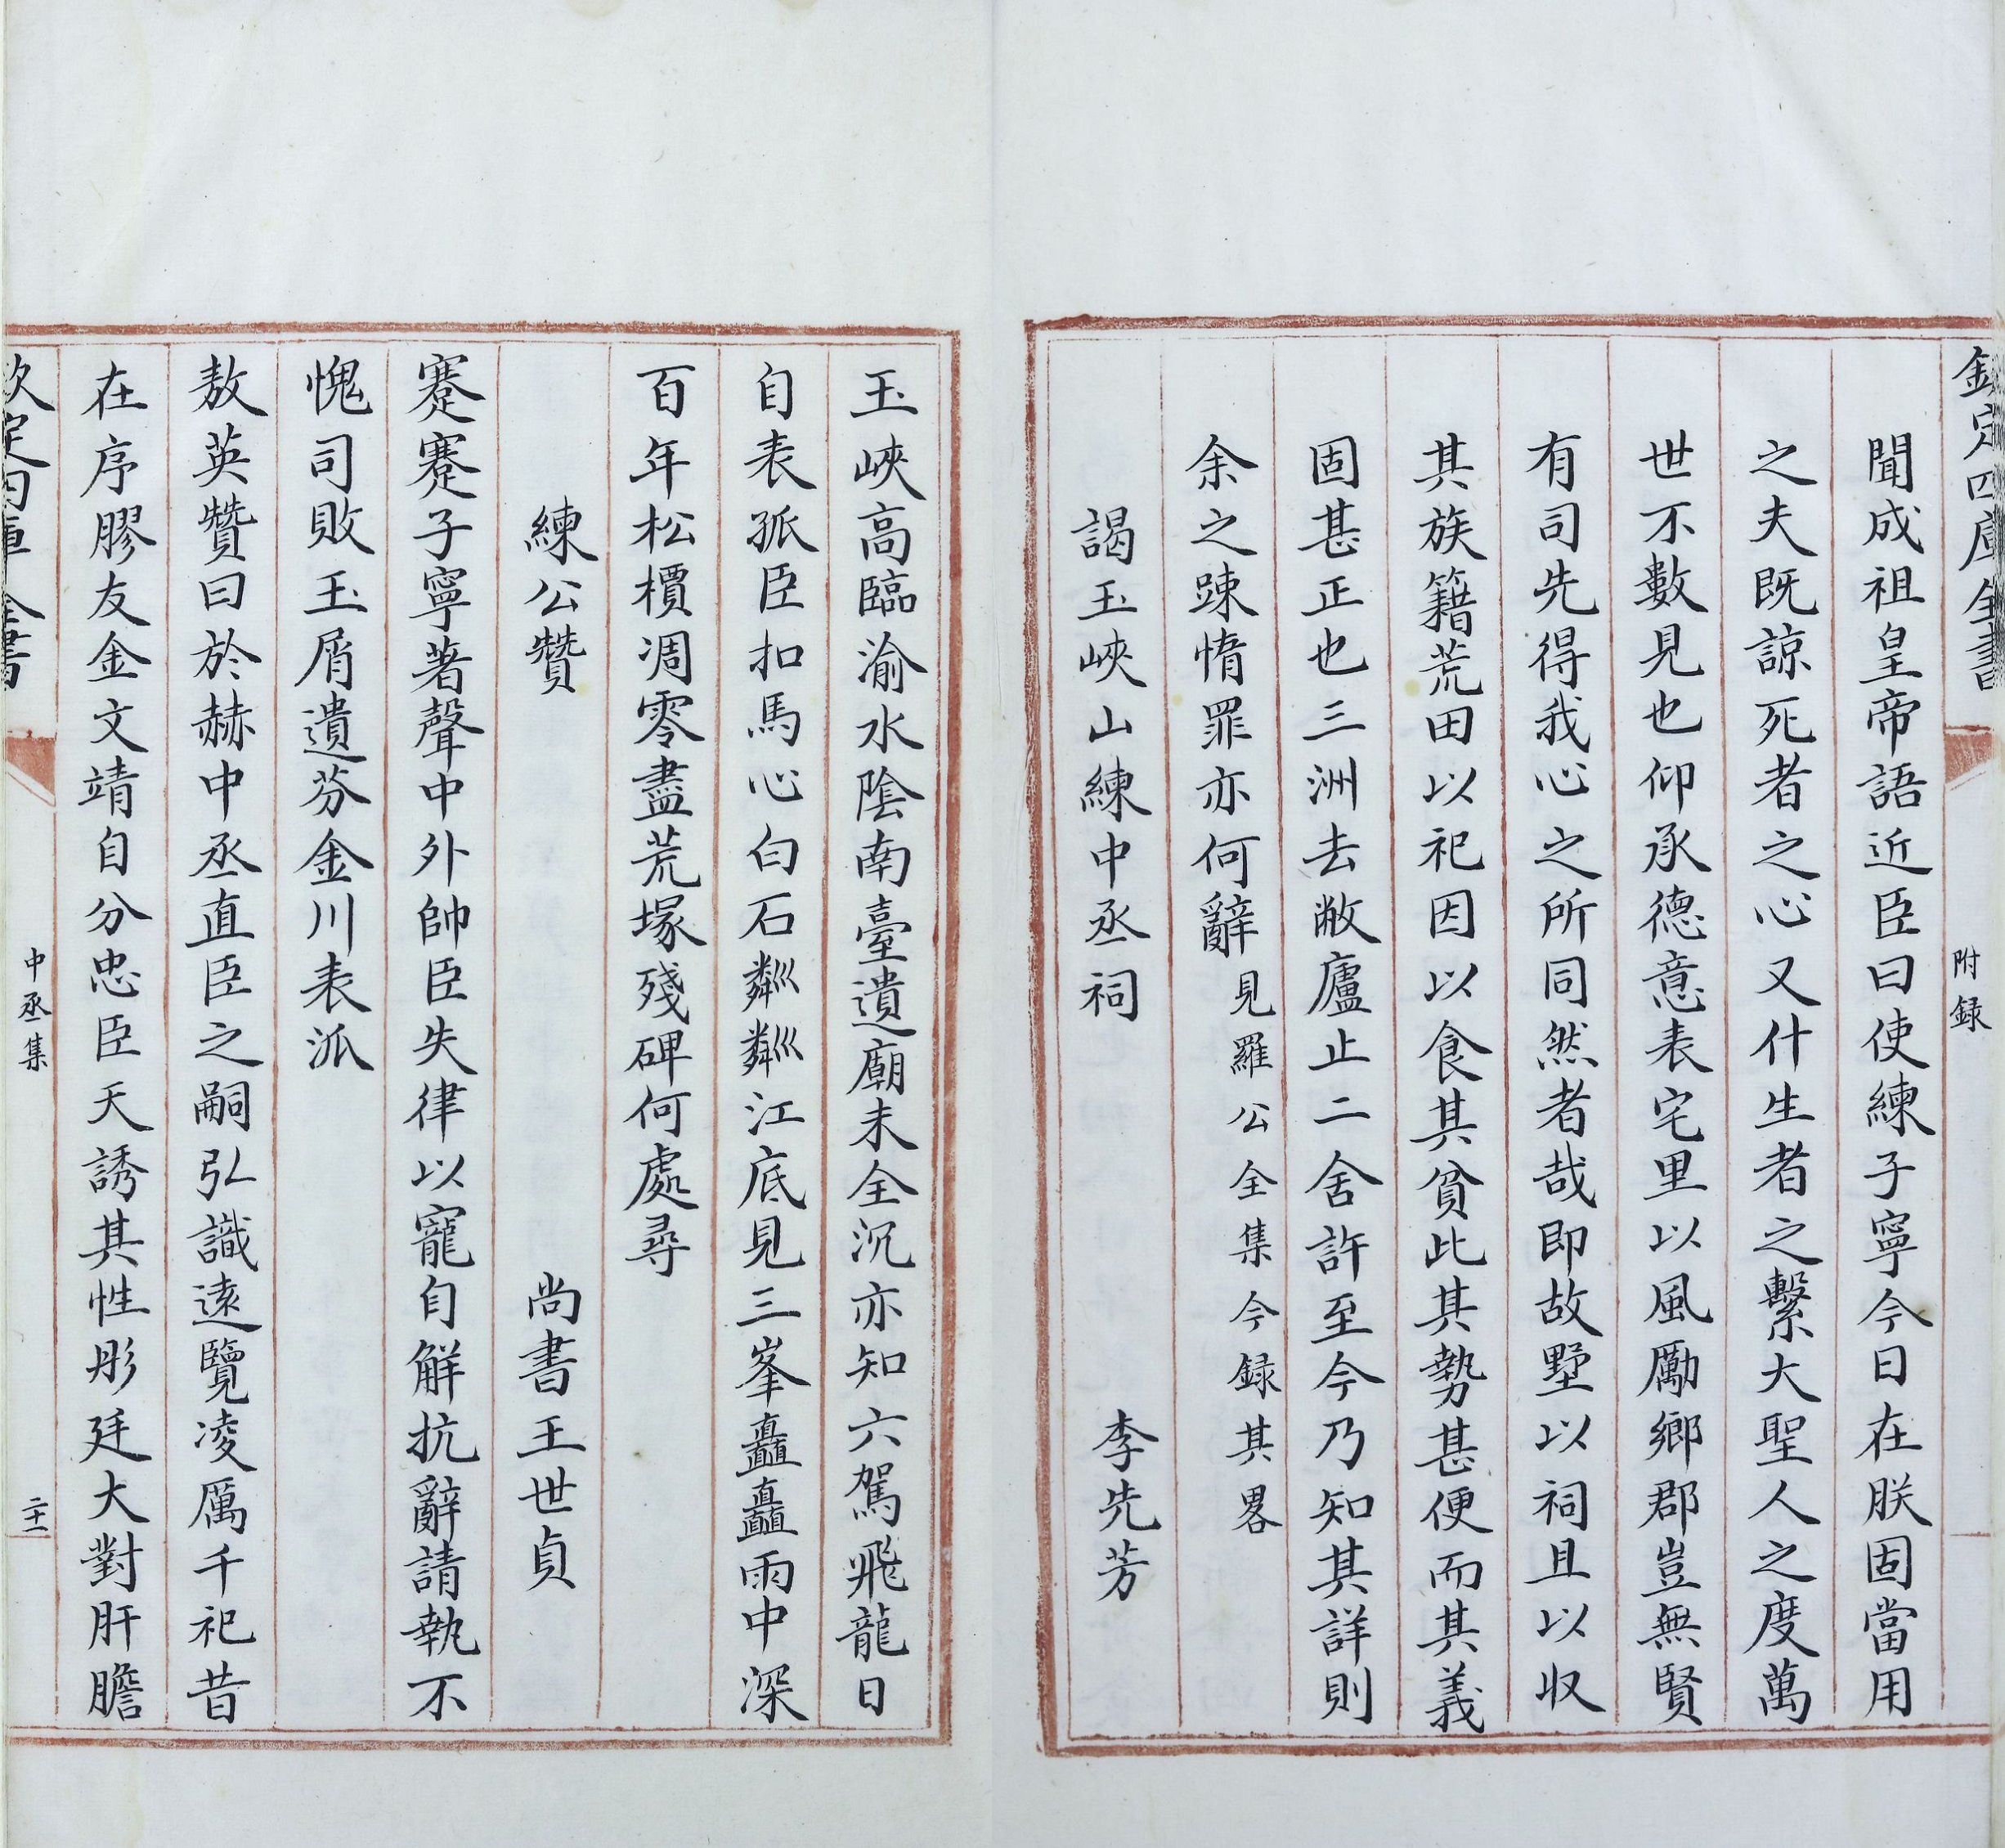 欽定四庫全書
附録
聞成祖皇帝語近臣曰使練子寧今日在朕固當用
之夫既諒死者之心又什生者之繫大聖人之度萬
世不數見也仰承德意表宅里以風勵鄉郡豈無賢
有司先得我心之所同然者哉即故墅以祠且以收
其族籍荒田以祀因以食其貧此其勢甚便而其義
固甚正也三洲去敝廬止二舍許至今乃知其詳則
余之踈惰罪亦何辭見羅公全集今録其畧
謁玉峽山練中丞祠 李先芳
玉峽高臨渝水陰南臺遺廟未全沉亦知六駕飛龍日
自表孤臣扣馬心白石粼粼江底見三峯矗矗雨中深
百年松檟凋零盡荒塚殘碑何處尋
練公贊 尚書王世貞
蹇蹇子寧著聲中外帥臣失律以寵自解抗辭請執不
愧司敗玉屑遺芬金川表派
敖英贊曰於赫中丞直臣之嗣弘識遠覽凌厲千祀昔
在序膠友金文靖自分忠臣天誘其性彤廷大對肝膽
欽定四庫全書
中丞集
二十一